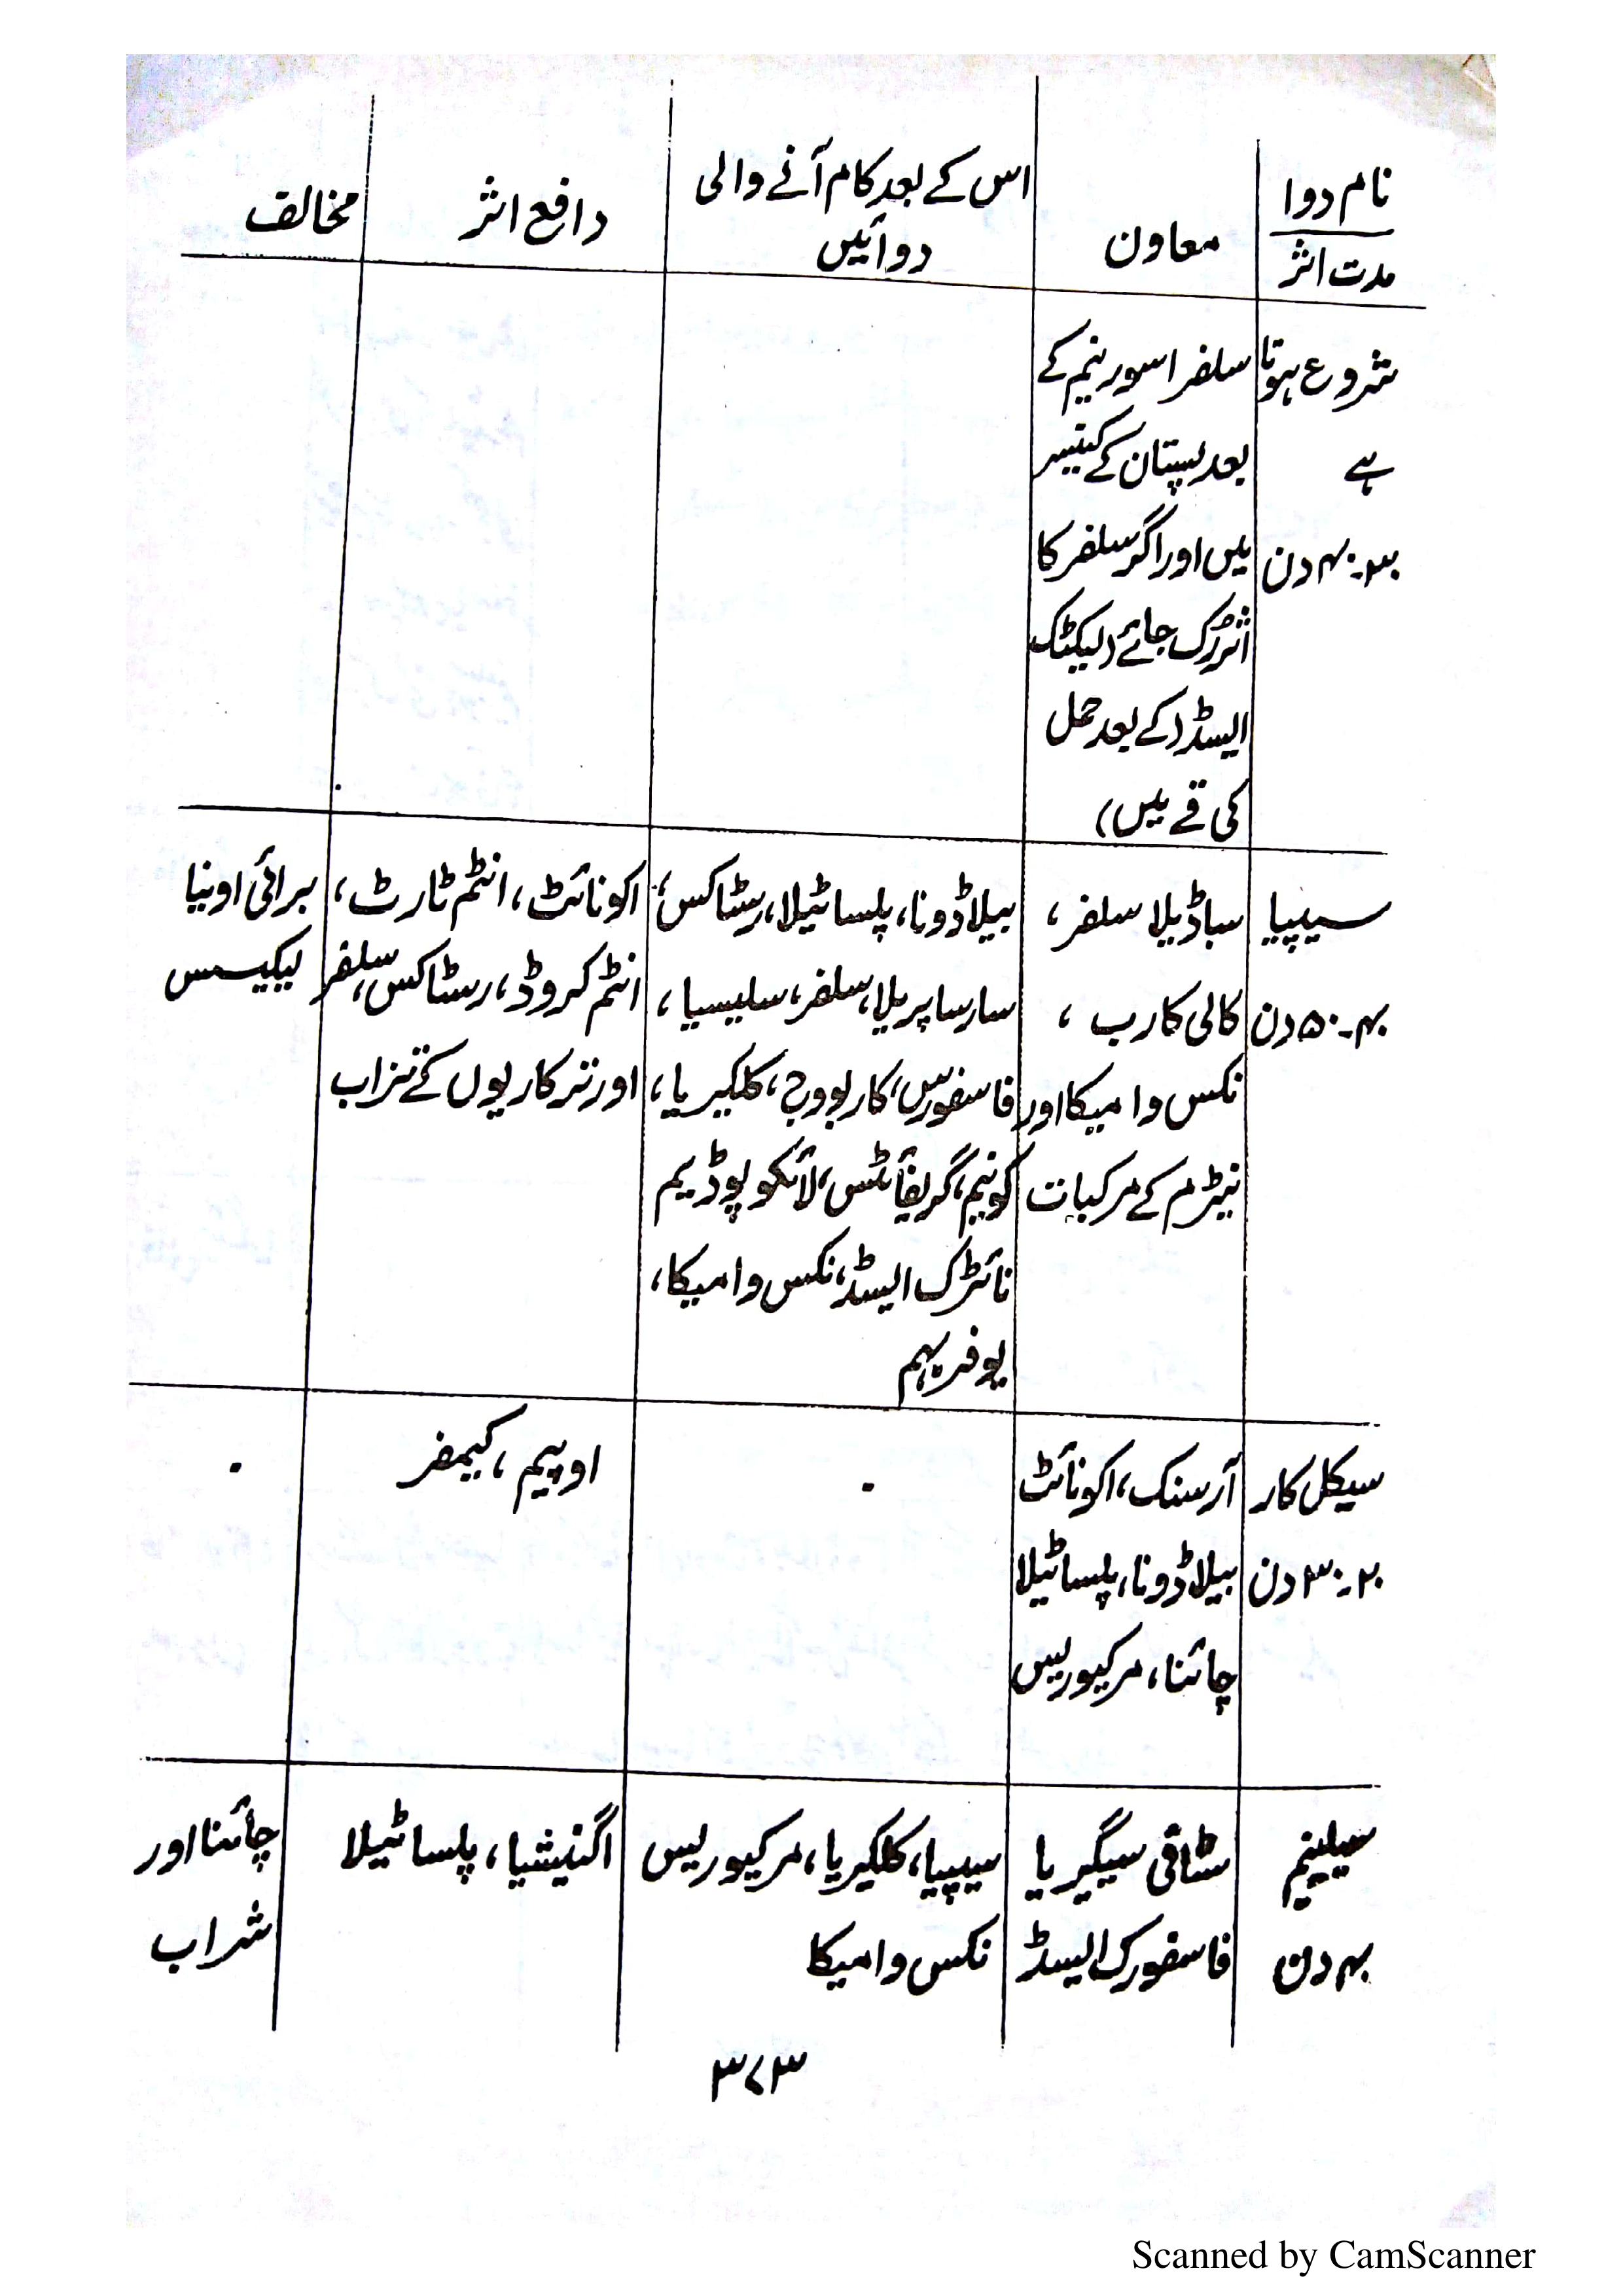 نام دوا
مدت اثر
معاون
اس کے بعد کام آنے والی
دوائیں
دافع اثر
مخالف
شروع ہوتا
ہے
۳۰۔۴۰ دن
سلفر اسورینم کے
بعد پستان کے کینسر
میں اور اگر سلفر کا
اثر رک جائے (لیکٹک
ایسڈ (کے بعد حمل
کی قے میں)
سیپیا
۴۰۔۵۰ دن
سباڈیلا سلفر،
کالی کارب ،
نکس وامیکا اور
نیٹرم کے مرکبات
بیلاڈونا، پلساٹیلا، رسٹاکس،
سارساپریلا، سلفر، سلیسیا ،
فاسفورس، کاربوویج، کلکیریا،
کونیم، گریفائٹس، لائکوپوڈیم
نائٹرک ایسڈ، نکس وامیکا،
یوفریہم
اکونائٹ، انٹم ٹارٹ،
انٹم کروڈ، رسٹاکس، سلفر
اور ترکاریوں کے تزاب
برائی اونیا
لیکیسس
سیکل کار
۲۰۔۳۰ دن
آرسنک، اکونائٹ
بیلاڈونا، پلساٹیلا
چائنا، مرکیوریس
۰
اوپیم ، کیمفر
۰
سیلینم
۴۰ دن
سٹافی سیگیریا
فاسفورک ایسڈ
سیپیا، کلکیریا، مرکیوریس
نکس وامیکا
اگنیشیا، پلساٹیلا
چائنا اور
شراب
۳۷۳
Scanned by CamScanner